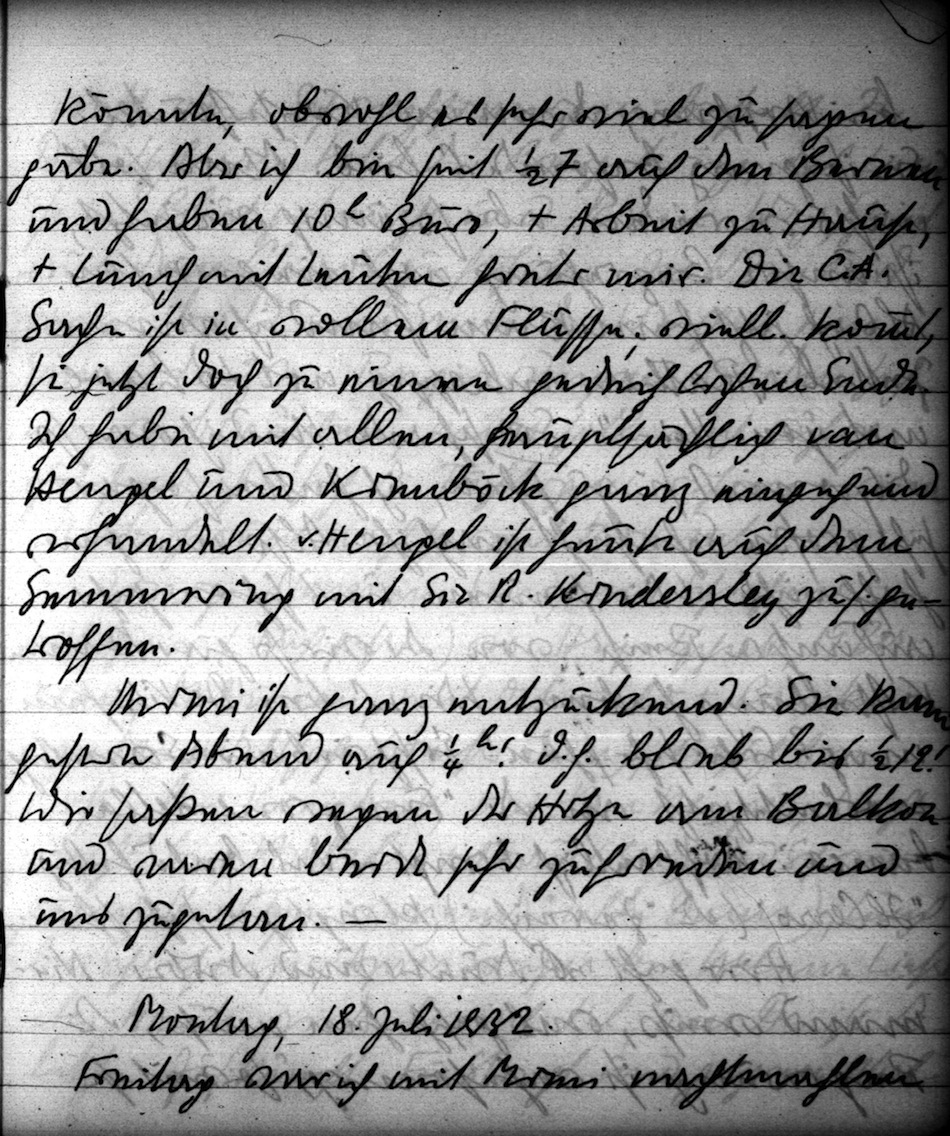 könnte, obwohl es sehr viel zu sagen
gäbe. Aber ich bin seit ½7 auf den Beinen
und haben 10h Büro, + Arbeit zu Hause,
+ Lunch mit Leuten hinter mir. Die C.A.
Sache ist in vollem Flusse; viell. kommt
sie jetzt doch zu einem gedeihlichen Ende.
Ich habe mit allen, hauptsächlich van
Hengel und Kienböck ganz eingehend
verhandelt. v. Hengel ist heute auf dem
Semmering mit Sir R. Kindersley zus. ge-
troffen.
Mimi ist ganz entzückend. Sie kam
gestern Abend auf ¼h! d.h. blieb bis ½12!
Wir saßen wegen der Hitze am Balkon
und waren beide sehr zufrieden und
uns zugetan. —
Montag, 18. Juli 1932.
Freitag war ich mit Mimi nachtmahlen